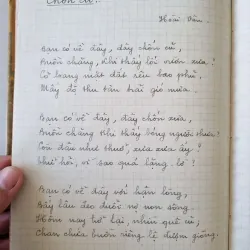 Chốn cũ..
Hoài Vân.
Bạn có về đây, đây chốn cũ,
Buồn chăng, khi thấy lối vườn xưa?
Cỏ hoang mất dấu rêu bao phủ,
Mây đó thu tàn hai gió mưa.
Bạn có về đây, đây chốn xưa,
Buồn chăng khi thấy bóng người thưa?
Còn đâu như thuở, xưa xưa ấy?
Như hỏi, vì sao quá lặng lờ?
Bạn có về đây với bận lòng,
Bấy lâu đeo đuổi nợ non sông
Hôm nay trở lại, nhìn quê cũ,
Chan chứa buồn riêng lệ